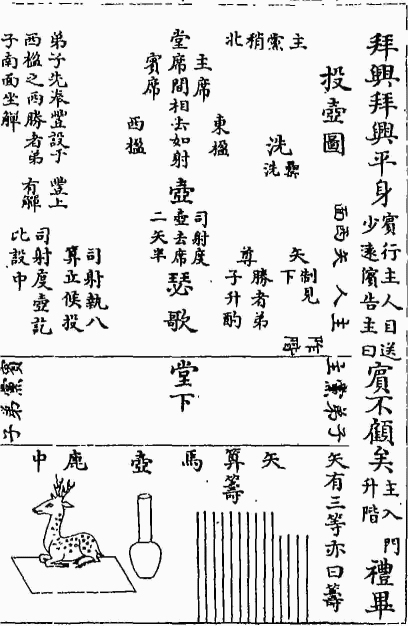 拜興拜興平身
賓行主人目送
少遠濱告主曰
賓不顧矣
主入門
升階
禮畢
投壺圖
主人矢西面
主黨稍北
洗
罍洗
東楹
阼階
矢
制見下
尊
勝者弟子升酌
主席
堂席間相去如射
賓席
西楹
壺
司射度
壺去席
二矢半
瑟歌
司射執八
算立候投
司射度壺訖
比設中
豐上
有觶
弟子先奉豐設于
西楹之西勝者弟
子南面坐觶
主黨弟子
堂下
賓黨弟子
矢有三等亦曰籌
矢
算籌
馬
壺
鹿中